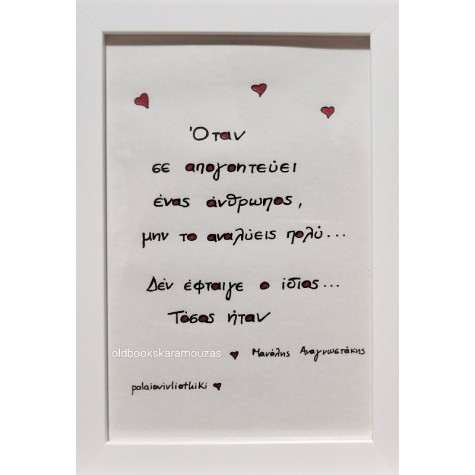 Όταν
σε απογοητεύει
ένας άνθρωπος,
μην το αναλύεις πολύ...
Δέν έφταιγε ο ίδιος...
Τόσος ήταν
oldbookskaramouzas
Μανόλης Αναγνωστάκης
palaiovivliothiki